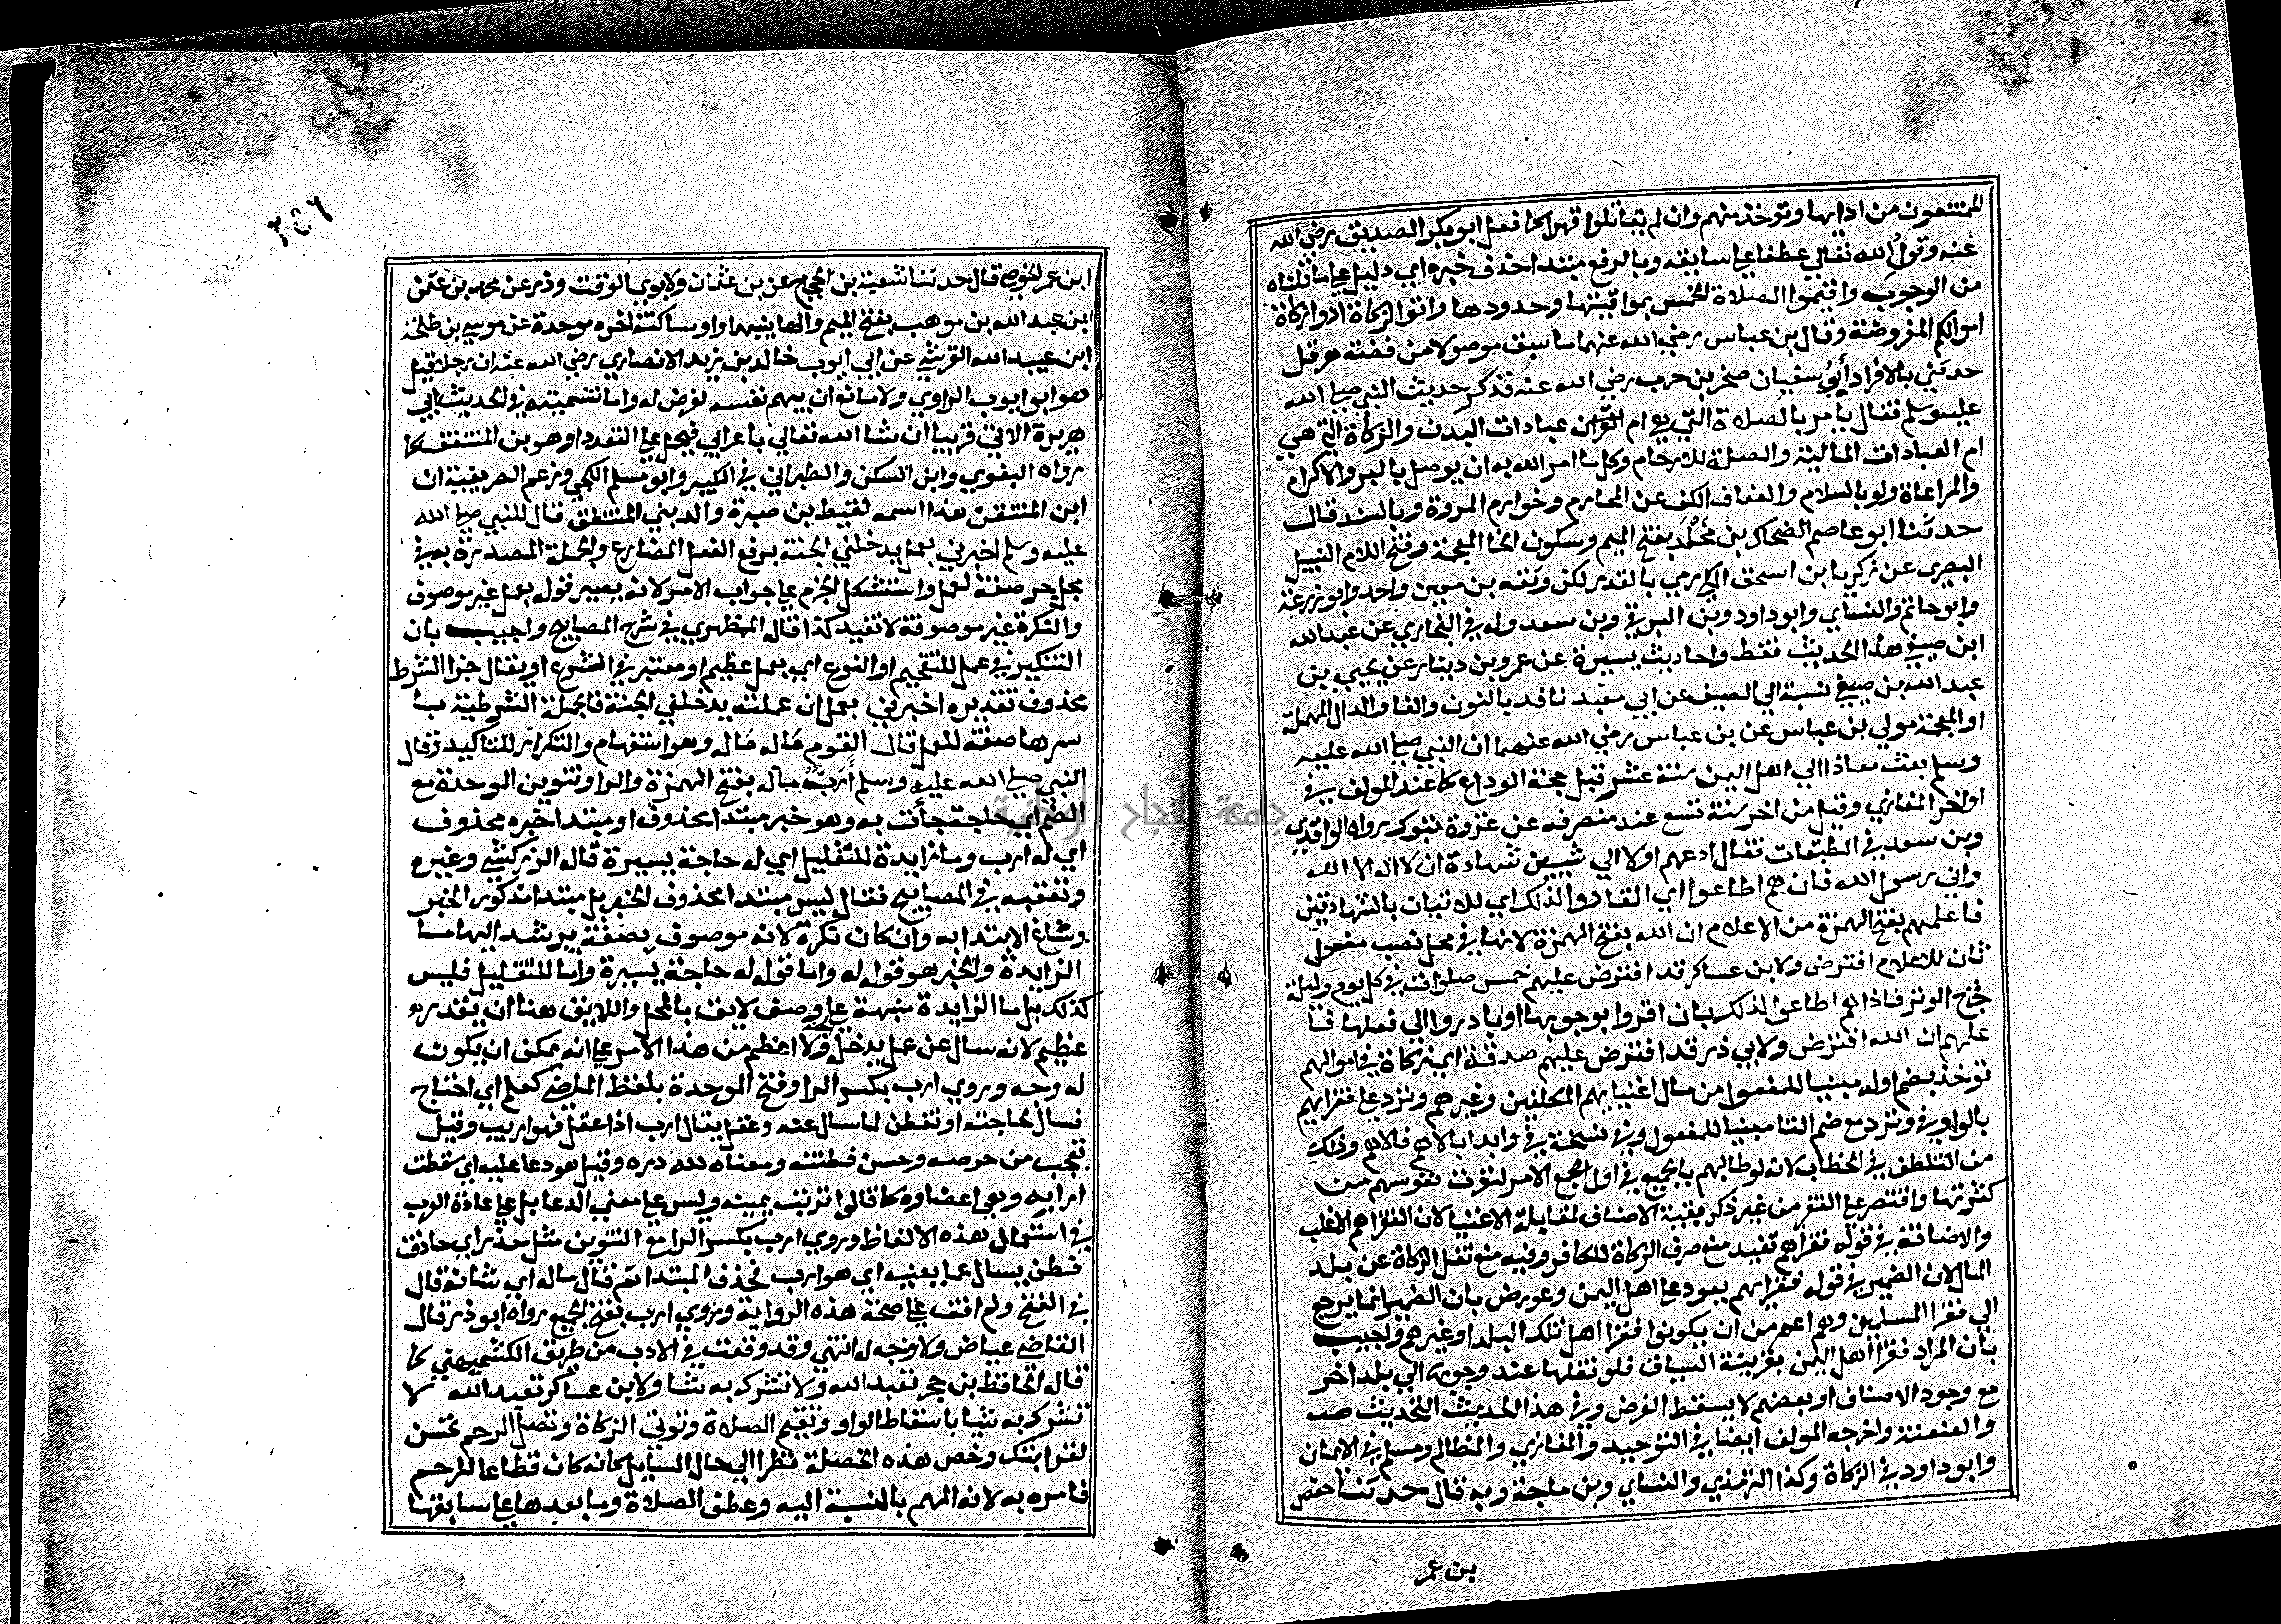 الممتنعون من ادايها وتوخذ منهم وان لم يقاتلوا قهرا كما فعل ابو بكر الصديق رضي الله
عنه وقول الله تعالي عطفا علي سابقه وبالرفع مبتدا حذف خبره اي دليل علي ما قلناه
من الوجوب واقيموا الصلاة الخمس بمواقيتها وحدودها واتوا الزكاة ادوا زكاة
اموالكم المفروضة وقال بن عباس رضي الله عنهما ما سبق موصولا من قصة هرقل
حدثني بالافراد أبو سفيان صخر بن حرب رضي الله عنه فذكر حديث النبي صلي الله
عليه وسلم فقال يامر بالصلاة التي هي ام عبادات البدن والزكاة التي هي
ام العبادات المالية والصلة للارحام وكل ما امر الله به ان يوصل بالبر والاكرام
والمراعاة ولو بالسلام والعفاف الكف عن المحارم وخوارم المروة وبالسند قال
حدثنا ابو عاصم الضحاك بن مَخْلَد بفتح الميم وسكون الخا المعجمة وفتح اللام النبيل
البصري عن زكريا ابن اسحق المكي رمي بالقدر لكن وثقه بن معين واحد وابو زرعة
وابو حاتم والنساي وابو داود وبن البرقي وبن سعد وله في البخاري عن عبد الله
ابن صيفي هذا الحديث فقط واحاديث يسيرة عن عمرو بن دينار عن يحيي بن
عبد الله بن صيفي نسبة الي الصيف عن ابي معبد نافد بالنون والفا والدال المهملة
او المعجمة مولي بن عباس عن بن عباس رضي الله عنهما ان النبي صلي الله عليه
وسلم بعث معاذا الي اهل اليمن سنة عشر قبل حجة الوداع كما عند المولف في
اواخر المغازي وقيل من اخر سنة تسع عند منصرفه عن غزوة تبوك رواه الواقدي
وبن سعد في الطبقات فقال ادعهم اولا الي شييين شهادة ان لا اله الا الله
واني رسول الله فان هم اطاعوا اي انقادوا لذلك اي للاتيان بالشهادتين
فاعلمهم بفتح الهمزة من الاعلام ان الله بفتح الهمزة لانها في محل نصب مفعول
ثان للاعلام افترض ولابن عساكر قد افترض عليهم خمس صلوات في كل يوم وليلة
فخرج الوتر فاذا هم اطاعوا لذلك بان اقروا بوجوبها او بادروا الي فعلها فا
علمهم ان الله افترض ولابي ذر قد افترض عليهم صدقة اي زكاة في اموالهم
توخذ بضم اوله مبنيا للمفعول من مال اغنيايهم المكلفين وغيرهم وترد علي فقرايهم
بالواو في وترد مع ضم التا مبنيا للمفعول وفي نسخة في وابدا بالاهم فالاهم وذلك
من التلطف في الخطاب لانه لو طالبهم بالجميع في اول الامر لنفرت نفوسهم من
كثرتها واقتصر علي الفقر من غير ذكر بقية الاصناف لمقابلة الاغنيا لان الفقرا هم الاغلب
والاضافة في قوله فقراهم تفيد منع صرف الزكاة للكافر وفيه منع نقل الزكاة عن بلد
المال لان الضمير في قوله فقرايهم يعود علي اهل اليمن وعورض بان الضمير انما يرجع
الي فقرا المسلمين وهم اعم من ان يكونوا فقرا اهل تلك البلد او غيرهم واجيب
بان المراد فقرا اهل اليمن بقرينة السياق فلو نقلها عند وجوبها الي بلد اخر
مع وجود الاصناف او بعضهم لا يسقط الفرض وفي هذا الحديث التحديث
والعنعنة واخرجه المولف ايضا في التوحيد والمغازي والمظالم ومسلم في الايمان
وابو داود في الزكاة وكذا الترمذي والنساي وبن ماجة وبه قال حدثنا حفص
بن عمر
٢٥٦
ابن عمر الحوضي قال حدثنا شعبة بن الحجاج عن بن عثمان ولابوي الوقت وذر عن محمد بن عثمن
ابن عبد الله بن موهب بفتح الميم والها بينهما واو ساكنة اخره موحدة عن موسي بن طلحة
ابن عبيد الله القرشي عن ابي ايوب خالد بن يزيد الانصاري رضي الله عنه ان رجلا قيل
هو ابو ايوب الراوي ولا مانع ان يبهم نفسه لغرض له واما تسميته في حديث ابي
هريرة الاتي قريبا ان شا الله تعالي باعرابي فيحمل علي التعدد او هو بن المنتفق كما
رواه البغوي وابن السكن والطبراني في الكبير وابو مسلم الكجي وزعم الصريفيني ان
ابن المنتفق هذا اسمه لقيط بن صبرة وافد بني المنتفق قال للنبي صلي الله
عليه وسلم اخبرني بعمل يدخلني الجنة برفع الفعل المضارع والجملة المصدرة به في
محل جر صفة لعمل واستشكل الجزم علي جواب الامر لانه يصير قوله بعمل غير موصوف
والنكرة غير موصوفة لا تفيد كذا قاله المظهري في شرح المصابيح واجيب بان
التنكير في عمل للتفخيم او النوع اي بعمل عظيم او معتبر في الشرع او يقال جزا الشرط
محذوف تقديره اخبرني بعمل ان عملته يدخلني الجنة فالجملة الشرطية با
سرها صفة لعمل قال القوم ماله ماله وهو استفهام والتكرار للتاكيد وقال
النبي صلي الله عليه وسلم أَرَبٌ ماله بفتح الهمزة والرا وتنوين الموحدة مع
الضم اي حاجة جأت به وهو خبر مبتدا محذوف او مبتدا خبره محذوف
اي له ارب وما زايدة للتقليل اي له حاجة يسيرة قاله الزركشي وغيره
وتعقبه في المصابيح فقال ليس مبتدا محذوف الخبر بل مبتدا مذكور الخبر
وشاغ الابتدا به وان كان نكرة لانه موصوف بصفة يرشد اليها ما
الزايدة والخبر هو قوله له واما قوله له حاجة يسيرة وما للتقليل فليس
كذلك بل ما الزايدة منبهة علي وصف لايق بالمحل واللايق هنا ان يقدر
عظيم لانه سال عن عمل يدخله الجنة ولا اعظم من هذا الامر علي انه يمكن ان يكون
له وجه وروي ارب بكسر الرا وفتح الموحدة بلفظ الماضي كعلم اي احتاج
فسال لحاجته او تفطن لما سال عنه وعقل يقال ارب اذا عقل فهو اريب وقيل
تعجب من حرصه وحسن فطنته ومعناه لله دره وقيل هو دعا عليه اي سقطت
ارابه وهي اعضاوه كما قالوا تربت يمينه وليس علي معني الدعا بل علي عادة العرب
في استعمال هذه الالفاظ وروي ارب بكسر الرا مع التنوين مثل حذر اي حاذق
فطن يسال عما يعنيه اي هو ارب فحذف المبتدا ثم قال ماله اي شانه قال
في الفتح ولم اقف علي صحة هذه الرواية وروي ارب بفتح الجميع رواه ابو ذر قال
القاضي عياض ولا وجه له انتهي وقد وقعت في الادب من طريق الكشميهني كما
قاله الحافظ بن حجر تعبد الله ولا تشرك به شيا ولابن عساكر تعبد الله لا
تشرك به شيا باسقاط الواو وتقيم الصلاة وتوتي الزكاة وتصل الرحم تحسن
لقرابتك وخص هذه الخصلة نظرا الي حال السايل كانه كان قطاعا للرحم
فامره به لانه المهم بالنسبة اليه وعطف الصلاة وما بعدها علي سابقها